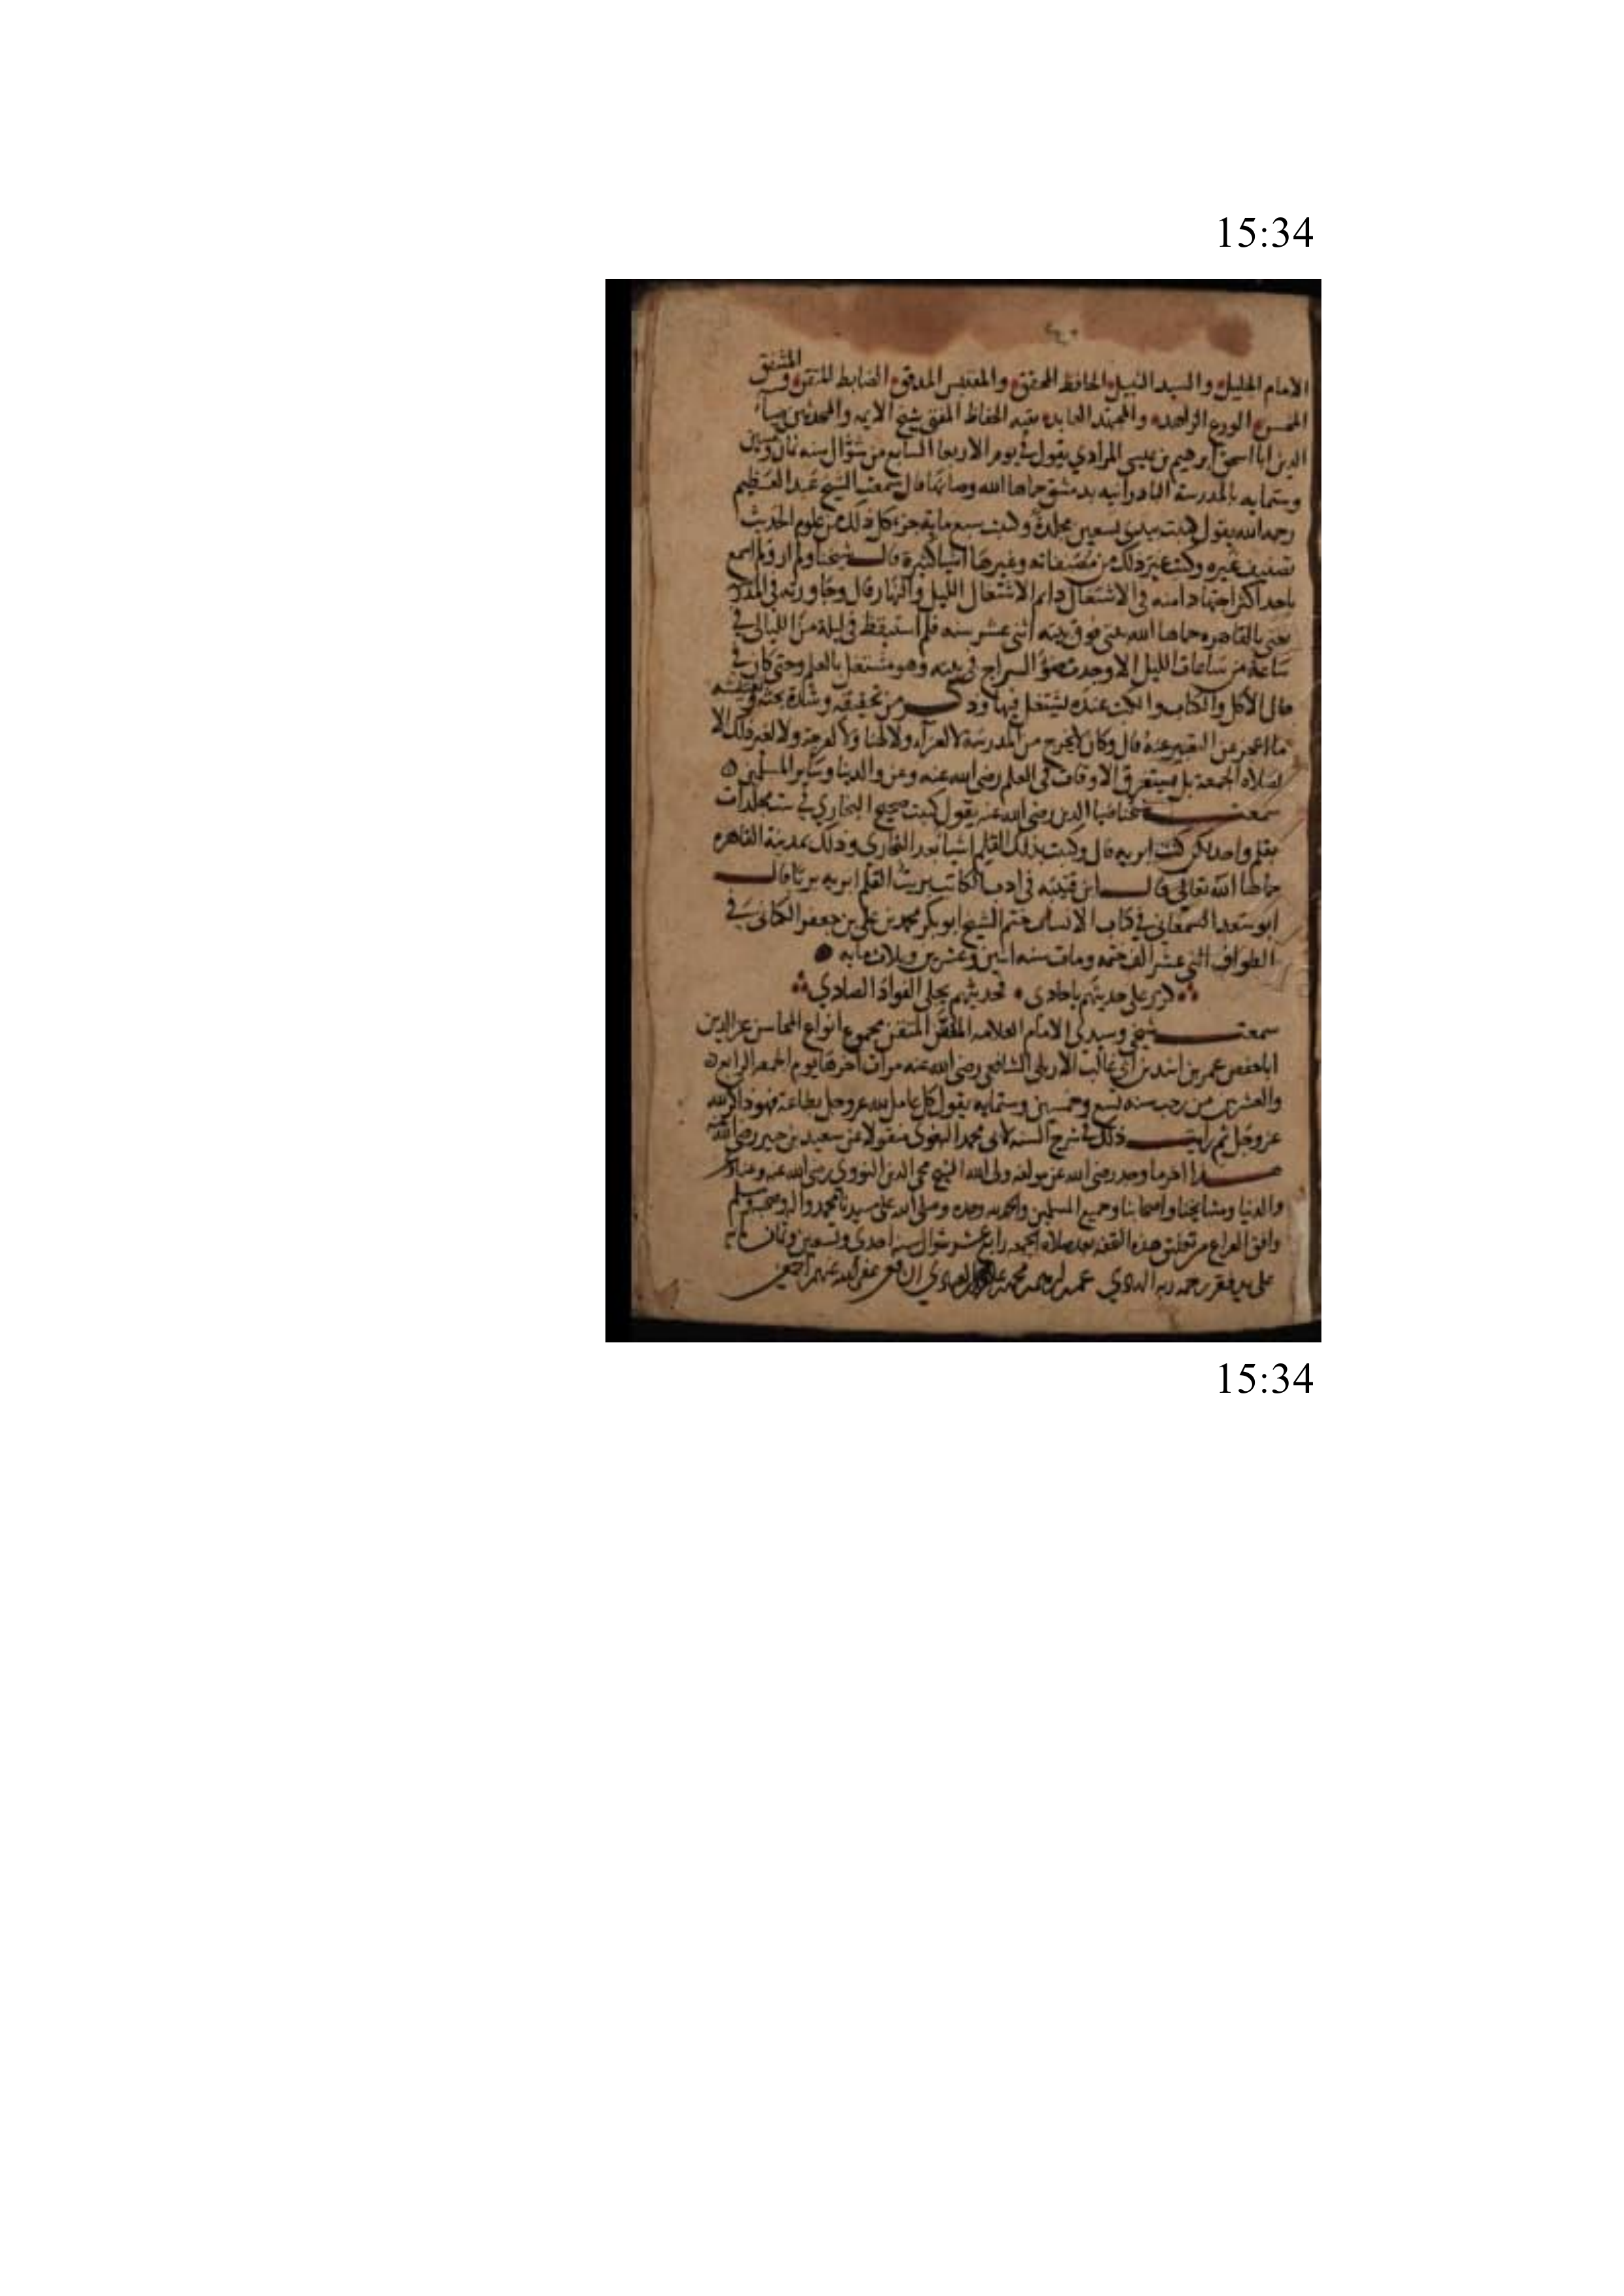 15:34
الامام الجليل والسيد النبيل الحافظ المحقق والمقتبس المدقق الضابط المتقن المشفق
المحسن الورع الزاهد والمجتهد العابد بقية الحفاظ المفتي شيخ الايمه والمحدثين ضيا
الدين ابا اسحق ابرهيم بن عيسى المرادي يقول في يوم الاربعا السابع من شوال سنه ثمان وخمسين
وستمايه بالمدرسة البادرائيه بدمشق حماها الله وصانها قال سمعت الشيخ عبد العظيم
رحمه الله يقول كتبت بيدي تسعين مجلدة وكتبت سبع ماية جزء كل ذلك من علوم الحديث
تصنيف غيره وكتب غير ذلك من مصنفاته وغيرها اشيا كثيرة قال شيخنا ولم ار ولم اسمع
باحد اكثر اجتهادا منه في الاشتغال دايم الاشتغال الليل والنهار قال وجاورته في المدرسة
يعني بالقاهره حماها الله بيتي فوق بيته اثنى عشر سنه فلم استيقظ في ليلة من الليالي في
ساعة من ساعات الليل الا وجدت ضوء السراج في بيته وهو مشتغل بالعلم وحتى كان في
حال الاكل والكتاب والكتب عنده يشتغل فيها وذكر من تحقيقه وشدة بحثه وتفتيشه
ما اعجز عن التعبير عنه قال وكان لا يخرج من المدرسة لا لعزاء ولا لهنا ولا لفرجة ولا لغير ذلك الا
لصلاة الجمعة بل يستغرق الاوقات في العلم رضي الله عنه وعن والدينا وساير المسلمين
سمعت شيخنا ضيا الدين رضي الله عنه يقول كتبت صحيح البخاري في ست مجلدات
بقلم واحد كنت ابريه قال وكتبت بذلك القلم اشيا بعد البخاري وذلك بمدينة القاهره
حماها الله تعالى قال ابن قتيبه في ادب الكاتب بريت القلم ابريه بريا قال
ابو سعد السمعاني في كتاب الانساب ختم الشيخ ابو بكر محمد بن علي بن جعفر الكتاني في
الطواف اثني عشر الف ختمه ومات سنه اثنين وعشرين وثلاث مايه
كرر علي حديثهم يا حادي فحديثهم يجلي الفواد الصادي
سمعت شيخي وسيدي الامام العلامه المتقن مجموع انواع المحاسن عز الدين
ابا حفص عمر بن اسد بن ابي غالب الاربلي الشافعي رضي الله عنه مرات اخرها يوم الجمعه الرابع
والعشرين من رجب سنه تسع وخمسين وستمايه يقول كل عامل لله عز وجل بطاعة فهو ذاكر لله
عز وجل ثم رايت ذلك في شرح السنه لابي محمد البغوي منقولا عن سعيد بن جبير رضي الله عنه
هذا اخر ما وجد رضي الله عن مولفه ولي الله الشيخ محي الدين النووي رضي الله عنه وعنا وعن
والدينا ومشايخنا واصحابنا وجميع المسلمين والحمد لله وحده وصلى الله على سيدنا محمد واله وصحبه وسلم
وافق الفراغ من تعليق هذه بعد صلاة الجمعه رابع عشر شوال سنه احدى وتسعين وثمان مايه
على يد فقير رحمة ربه محمد غفر الله عنهم اجمعين
15:34